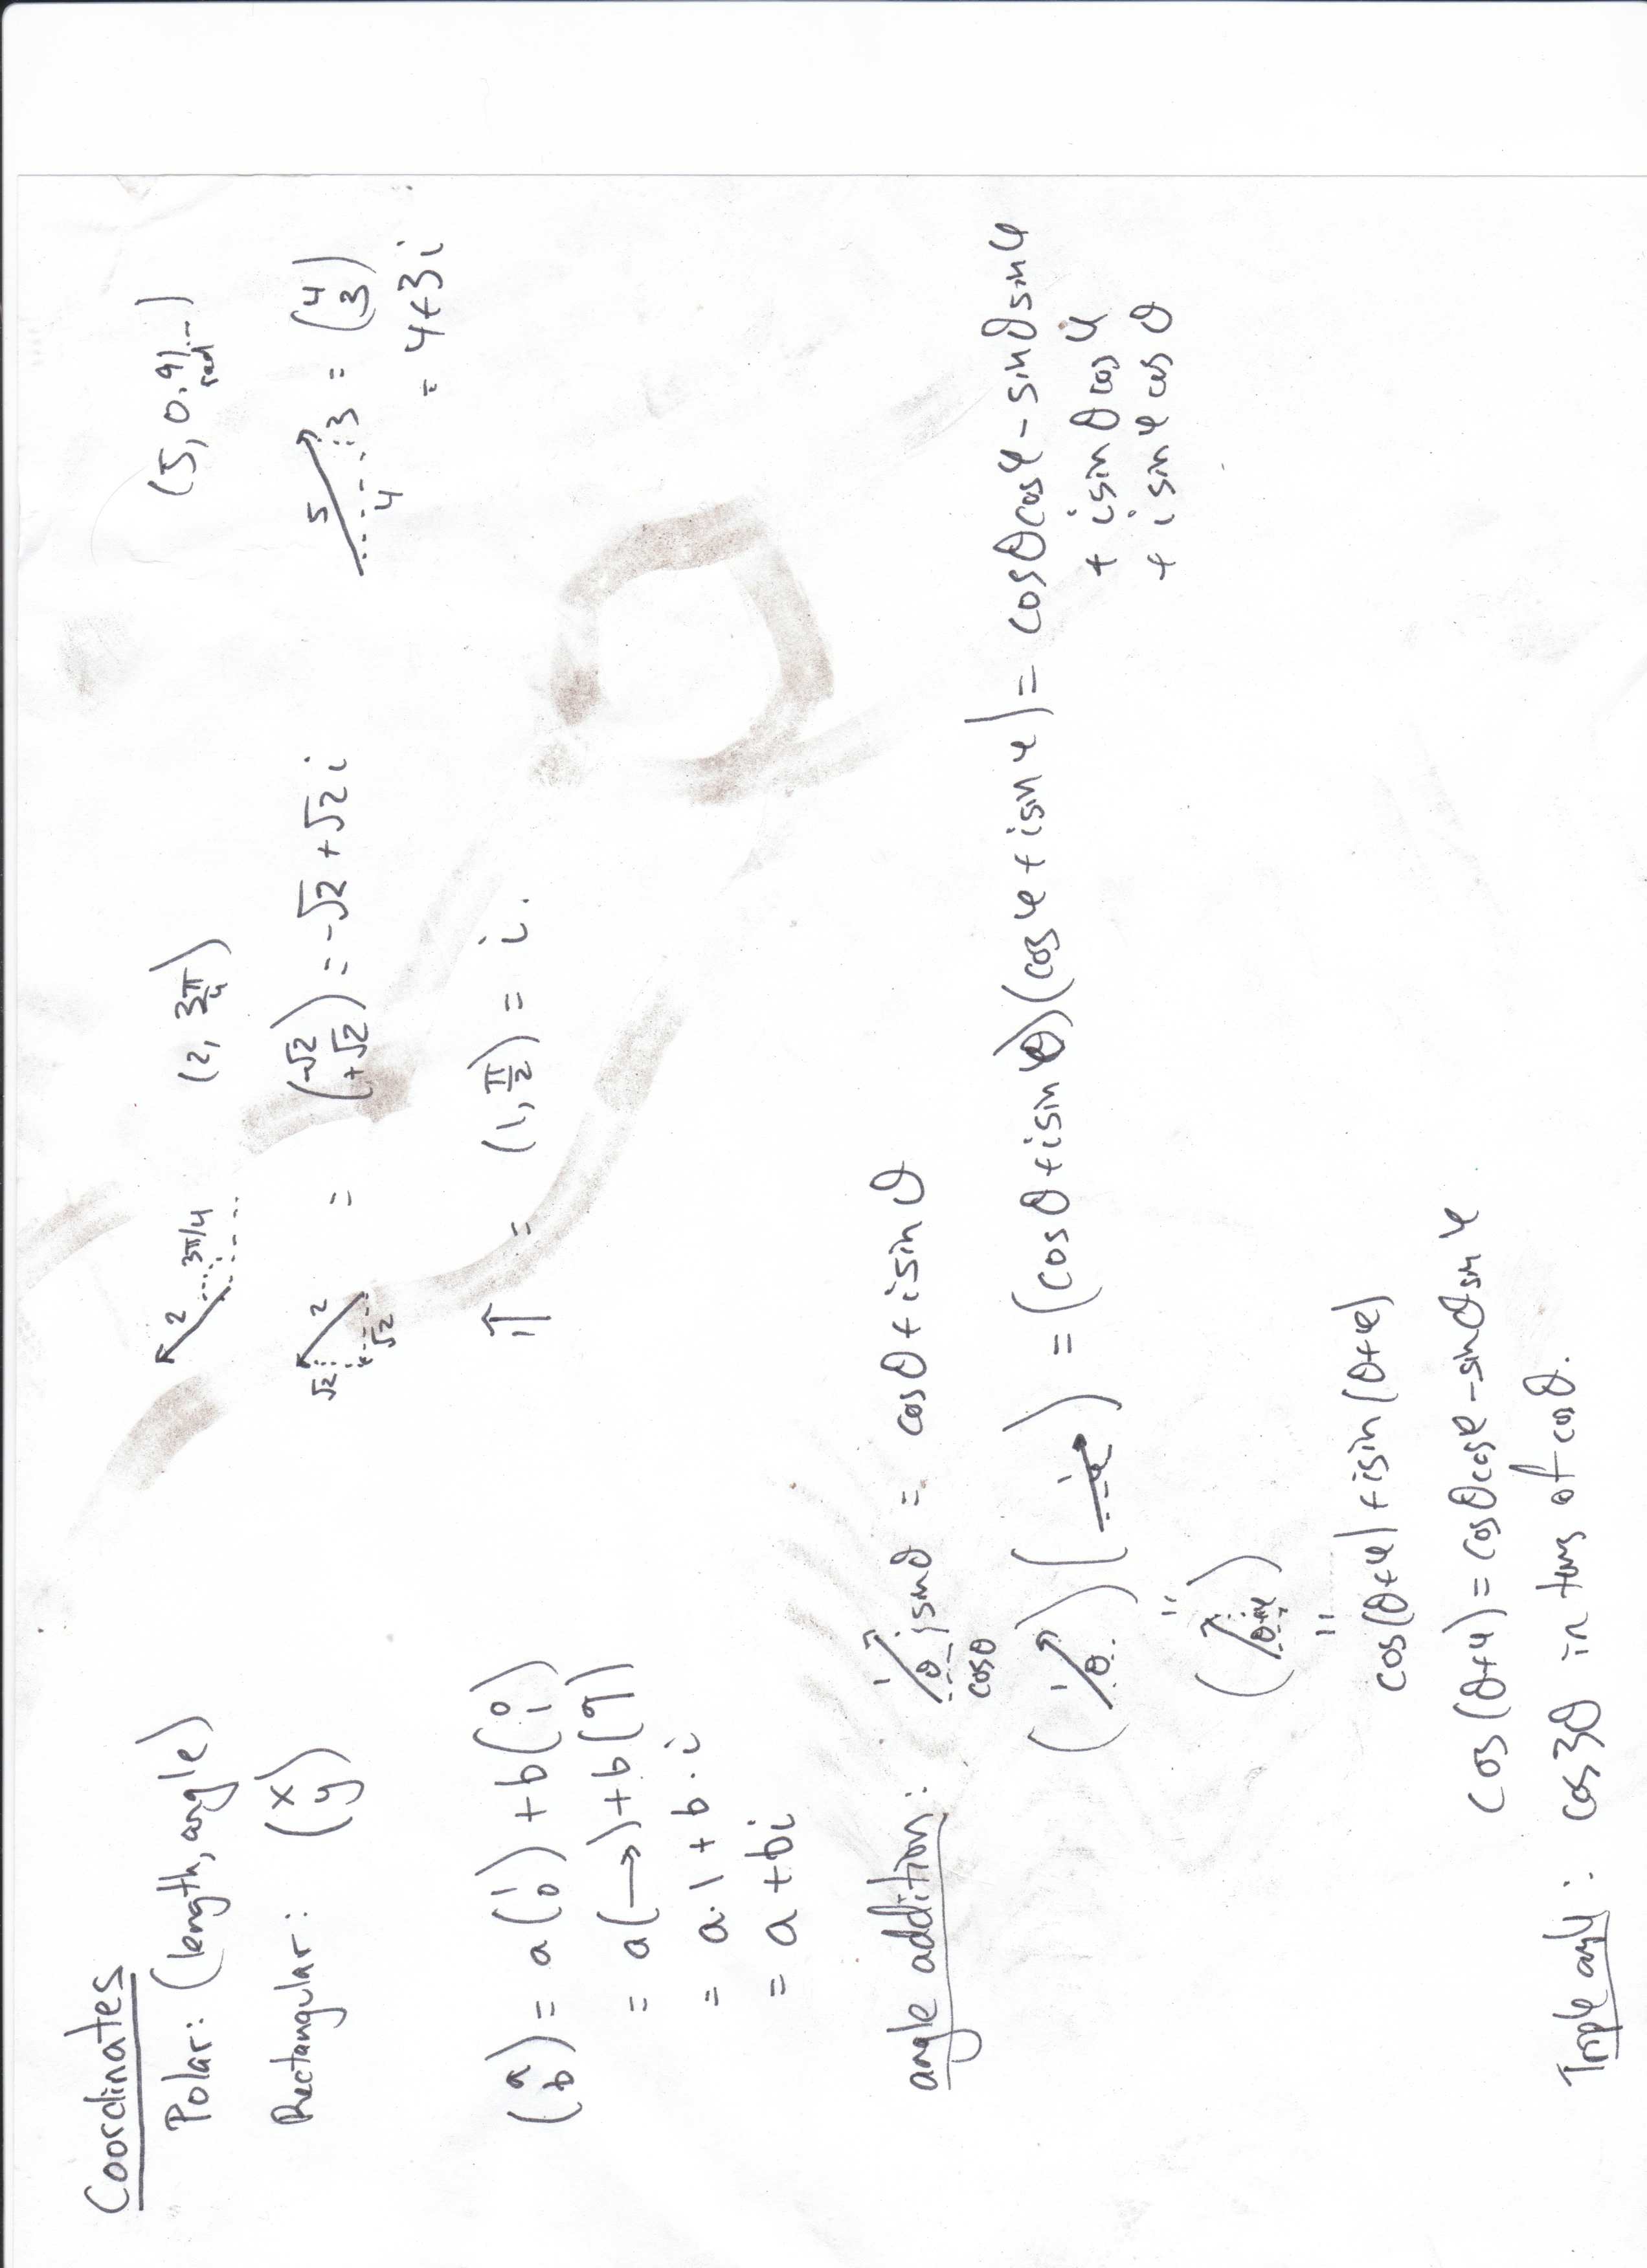 Coordinates
Polar: (length, angle)
2 3π/4 (2, 3π/4) (5, 0.9... rad)
Rectangular: (x y)
√2 2 √2 = (-√2 +√2) = -√2 + √2 i
5 4 3 = (4 3)
= 4+3i
(a b) = a(1 0) + b(0 1)
1↑ = (1, π/2) = i.
= a(→) + b(↑)
= a·1 + b·i
= a + bi
angle addition: 1 θ sinθ cosθ = cosθ + i sinθ
(1 θ)(φ) = (cosθ + i sinθ)(cosφ + i sinφ) = cosθcosφ - sinθsinφ
+ i sinθ cosφ
+ i sinφ cosθ
"
(θ+φ)
"
cos(θ+φ) + i sin(θ+φ)
cos(θ+φ) = cosθcosφ - sinθsinφ
Triple angle: cos3θ in terms of cosθ.